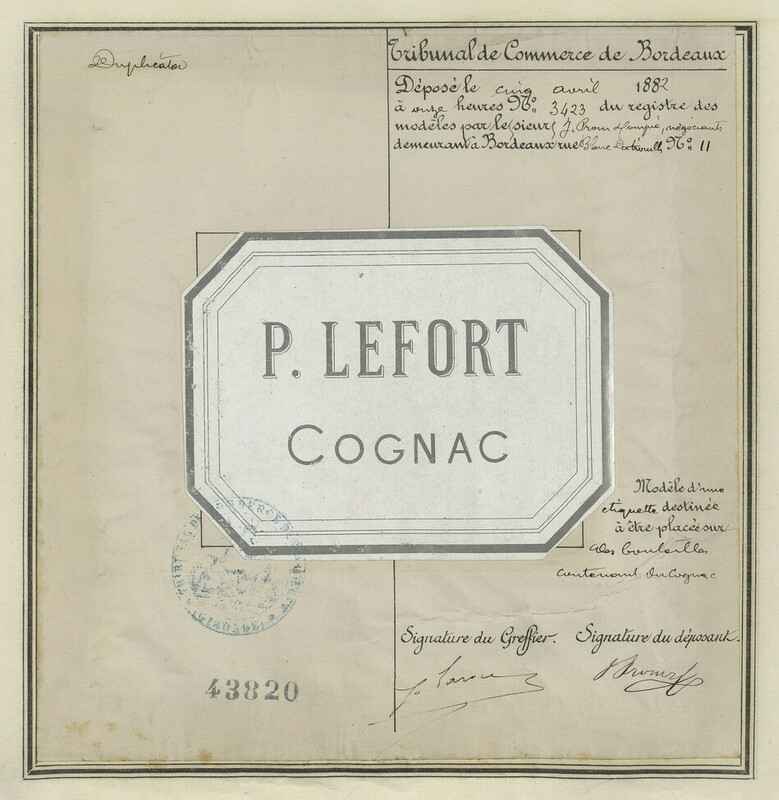 Duplicata
Tribunal de Commerce de Bordeaux
Déposé le cinq avril 1882
à onze heures N° 3423 du registre des
modèles par le(sieur) J. Prom & Compie, négociants
demeurant à Bordeaux rue Blanc N° 11
P. LEFORT
COGNAC
Modèle d'une
étiquette destinée
à être placée sur
des bouteilles
contenant du Cognac
TRIBUNAL DE COMMERCE DE
(GIRONDE)
Signature du Greffier. Signature du déposant.
43820